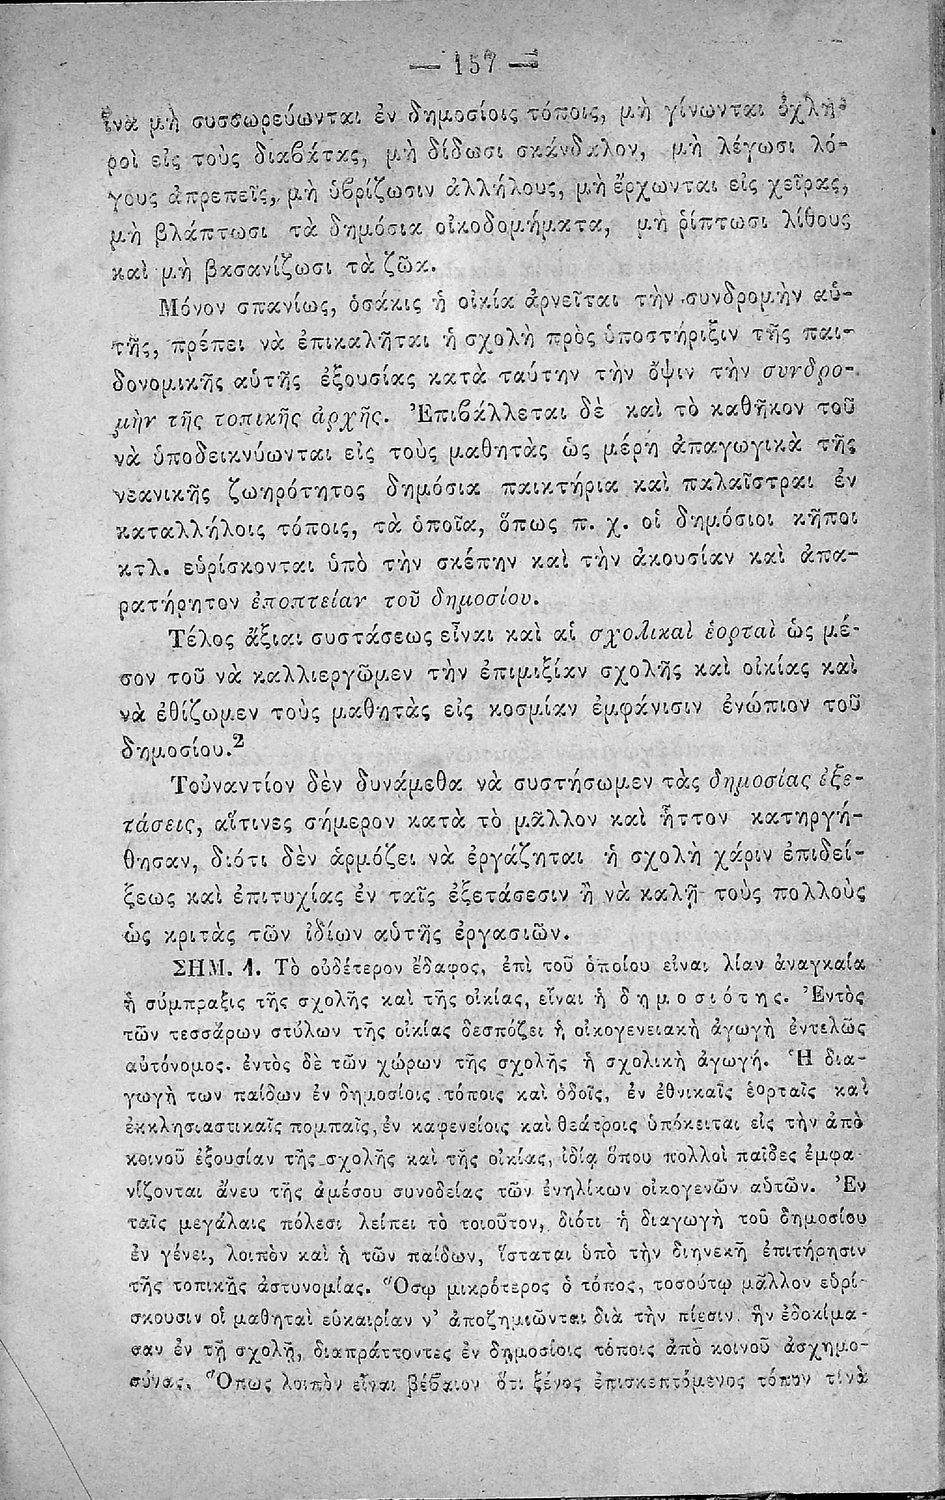 — 157 —
ἵνα μὴ συσσωρεύωνται ἐν δημοσίοις τόποις, μὴ γίνωνται ὀχλη-
ροὶ εἰς τοὺς διαβάτας, μὴ δίδωσι σκάνδαλον, μὴ λέγωσι λό-
γους ἀπρεπεῖς, μὴ ὑβρίζωσιν ἀλλήλους, μὴ ἔρχωνται εἰς χεῖρας,
μὴ βλάπτωσι τὰ δημόσια οἰκοδομήματα, μὴ ῥίπτωσι λίθους
καὶ μὴ βασανίζωσι τὰ ζῶα.
Μόνον σπανίως, ὁσάκις ἡ οἰκία ἀρνεῖται τὴν συνδρομὴν αὑ-
τῆς, πρέπει νὰ ἐπικαλῆται ἡ σχολὴ πρὸς ὑποστήριξιν τῆς παι-
δονομικῆς αὑτῆς ἐξουσίας κατὰ ταύτην τὴν ὄψιν τὴν συνδρο-
μὴν τῆς τοπικῆς ἀρχῆς. Ἐπιβάλλεται δὲ καὶ τὸ καθῆκον τοῦ
νὰ ὑποδεικνύωνται εἰς τοὺς μαθητὰς ὡς μέρη ἀπαγωγικὰ τῆς
νεανικῆς ζωηρότητος δημόσια παικτήρια καὶ παλαῖστραι ἐν
καταλλήλοις τόποις, τὰ ὁποῖα, ὅπως π. χ. οἱ δημόσιοι κῆποι
κτλ. εὑρίσκονται ὑπὸ τὴν σκέπην καὶ τὴν ἀκουσίαν καὶ ἀπα-
ρατήρητον ἐποπτείαν τοῦ δημοσίου.
Τέλος ἄξιαι συστάσεως εἶναι καὶ αἱ σχολικαὶ ἑορταὶ ὡς μέ-
σον τοῦ νὰ καλλιεργῶμεν τὴν ἐπιμιξίαν σχολῆς καὶ οἰκίας καὶ
νὰ ἐθίζωμεν τοὺς μαθητὰς εἰς κοσμίαν ἐμφάνισιν ἐνώπιον τοῦ
δημοσίου.²
Τοὐναντίον δὲν δυνάμεθα νὰ συστήσωμεν τὰς δημοσίας ἐξε-
τάσεις, αἵτινες σήμερον κατὰ τὸ μᾶλλον καὶ ἧττον κατηργή-
θησαν, διότι δὲν ἁρμόζει νὰ ἐργάζηται ἡ σχολὴ χάριν ἐπιδεί-
ξεως καὶ ἐπιτυχίας ἐν ταῖς ἐξετάσεσιν ἢ νὰ καλῇ τοὺς πολλοὺς
ὡς κριτὰς τῶν ἰδίων αὑτῆς ἐργασιῶν.
ΣΗΜ. 1. Τὸ οὐδέτερον ἔδαφος, ἐπὶ τοῦ ὁποίου εἶναι λίαν ἀναγκαία
ἡ σύμπραξις τῆς σχολῆς καὶ τῆς οἰκίας, εἶναι ἡ δημοσιότης. Ἐντὸς
τῶν τεσσάρων στύλων τῆς οἰκίας δεσπόζει ἡ οἰκογενειακὴ ἀγωγὴ ἐντελῶς
αὐτόνομος. ἐντὸς δὲ τῶν χώρων τῆς σχολῆς ἡ σχολικὴ ἀγωγή. Ἡ δια-
γωγὴ των παίδων ἐν δημοσίοις τόποις καὶ ὁδοῖς, ἐν ἐθνικαῖς ἑορταῖς καὶ
ἐκκλησιαστικαῖς πομπαῖς, ἐν καφενείοις καὶ θεάτροις ὑπόκειται εἰς τὴν ἀπὸ
κοινοῦ ἐξουσίαν τῆς σχολῆς καὶ τῆς οἰκίας, ἰδίᾳ ὅπου πολλοὶ παῖδες ἐμφα
νίζονται ἄνευ τῆς ἀμέσου συνοδείας τῶν ἐνηλίκων οἰκογενῶν αὑτῶν. Ἐν
ταῖς μεγάλαις πόλεσι λείπει τὸ τοιοῦτον, διότι ἡ διαγωγὴ τοῦ δημοσίου
ἐν γένει, λοιπὸν καὶ ἡ τῶν παίδων, ἵσταται ὑπὸ τὴν διηνεκῆ ἐπιτήρησιν
τῆς τοπικῆς ἀστυνομίας. Ὅσῳ μικρότερος ὁ τόπος, τοσούτῳ μᾶλλον εὑρί-
σκουσιν οἱ μαθηταὶ εὐκαιρίαν ν' ἀποζημιῶνται διὰ τὴν πίεσιν. ἣν ἐδοκίμα-
σαν ἐν τῇ σχολῇ, διαπράττοντες ἐν δημοσίοις τόποις ἀπὸ κοινοῦ ἀσχημο-
σύνας. Ὅπως λοιπὸν εἶναι βέβαιον ὅτι ξένος ἐπισκεπτόμενος τόπον τινὰ